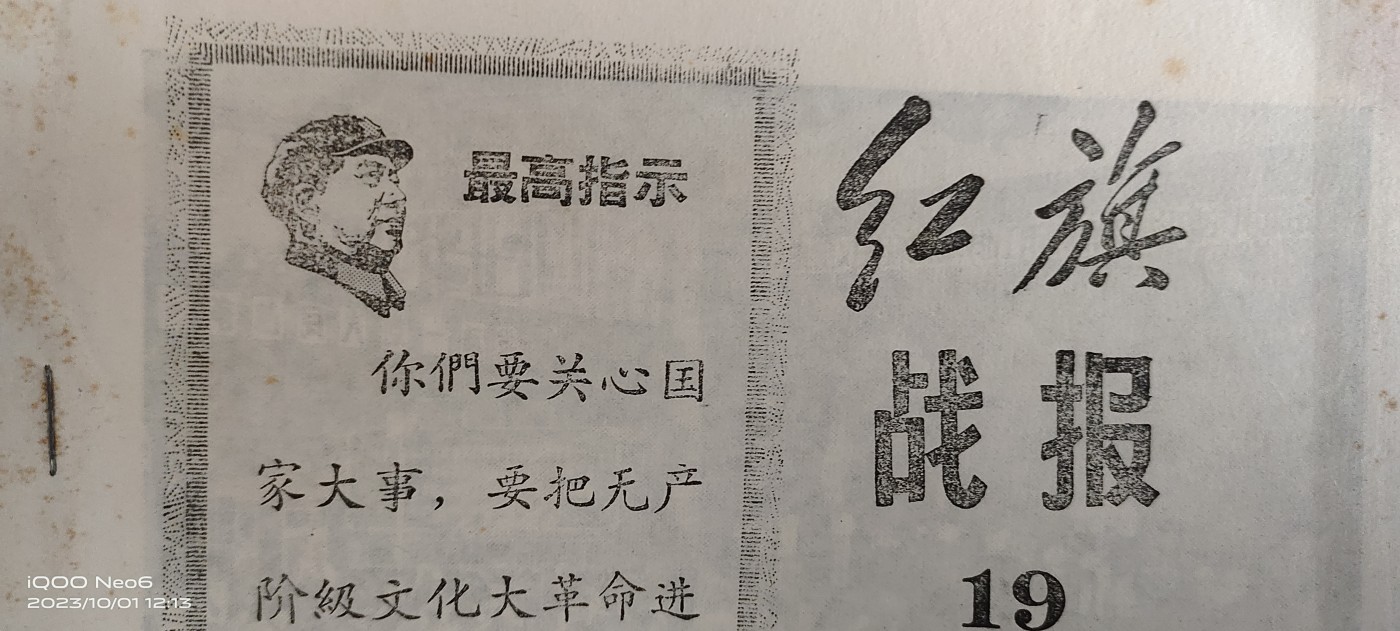 最高指示
你們要关心国
家大事，要把无产
阶級文化大革命进
红旗
战报
19
iQOO Neo6
2023/10/01 12:13